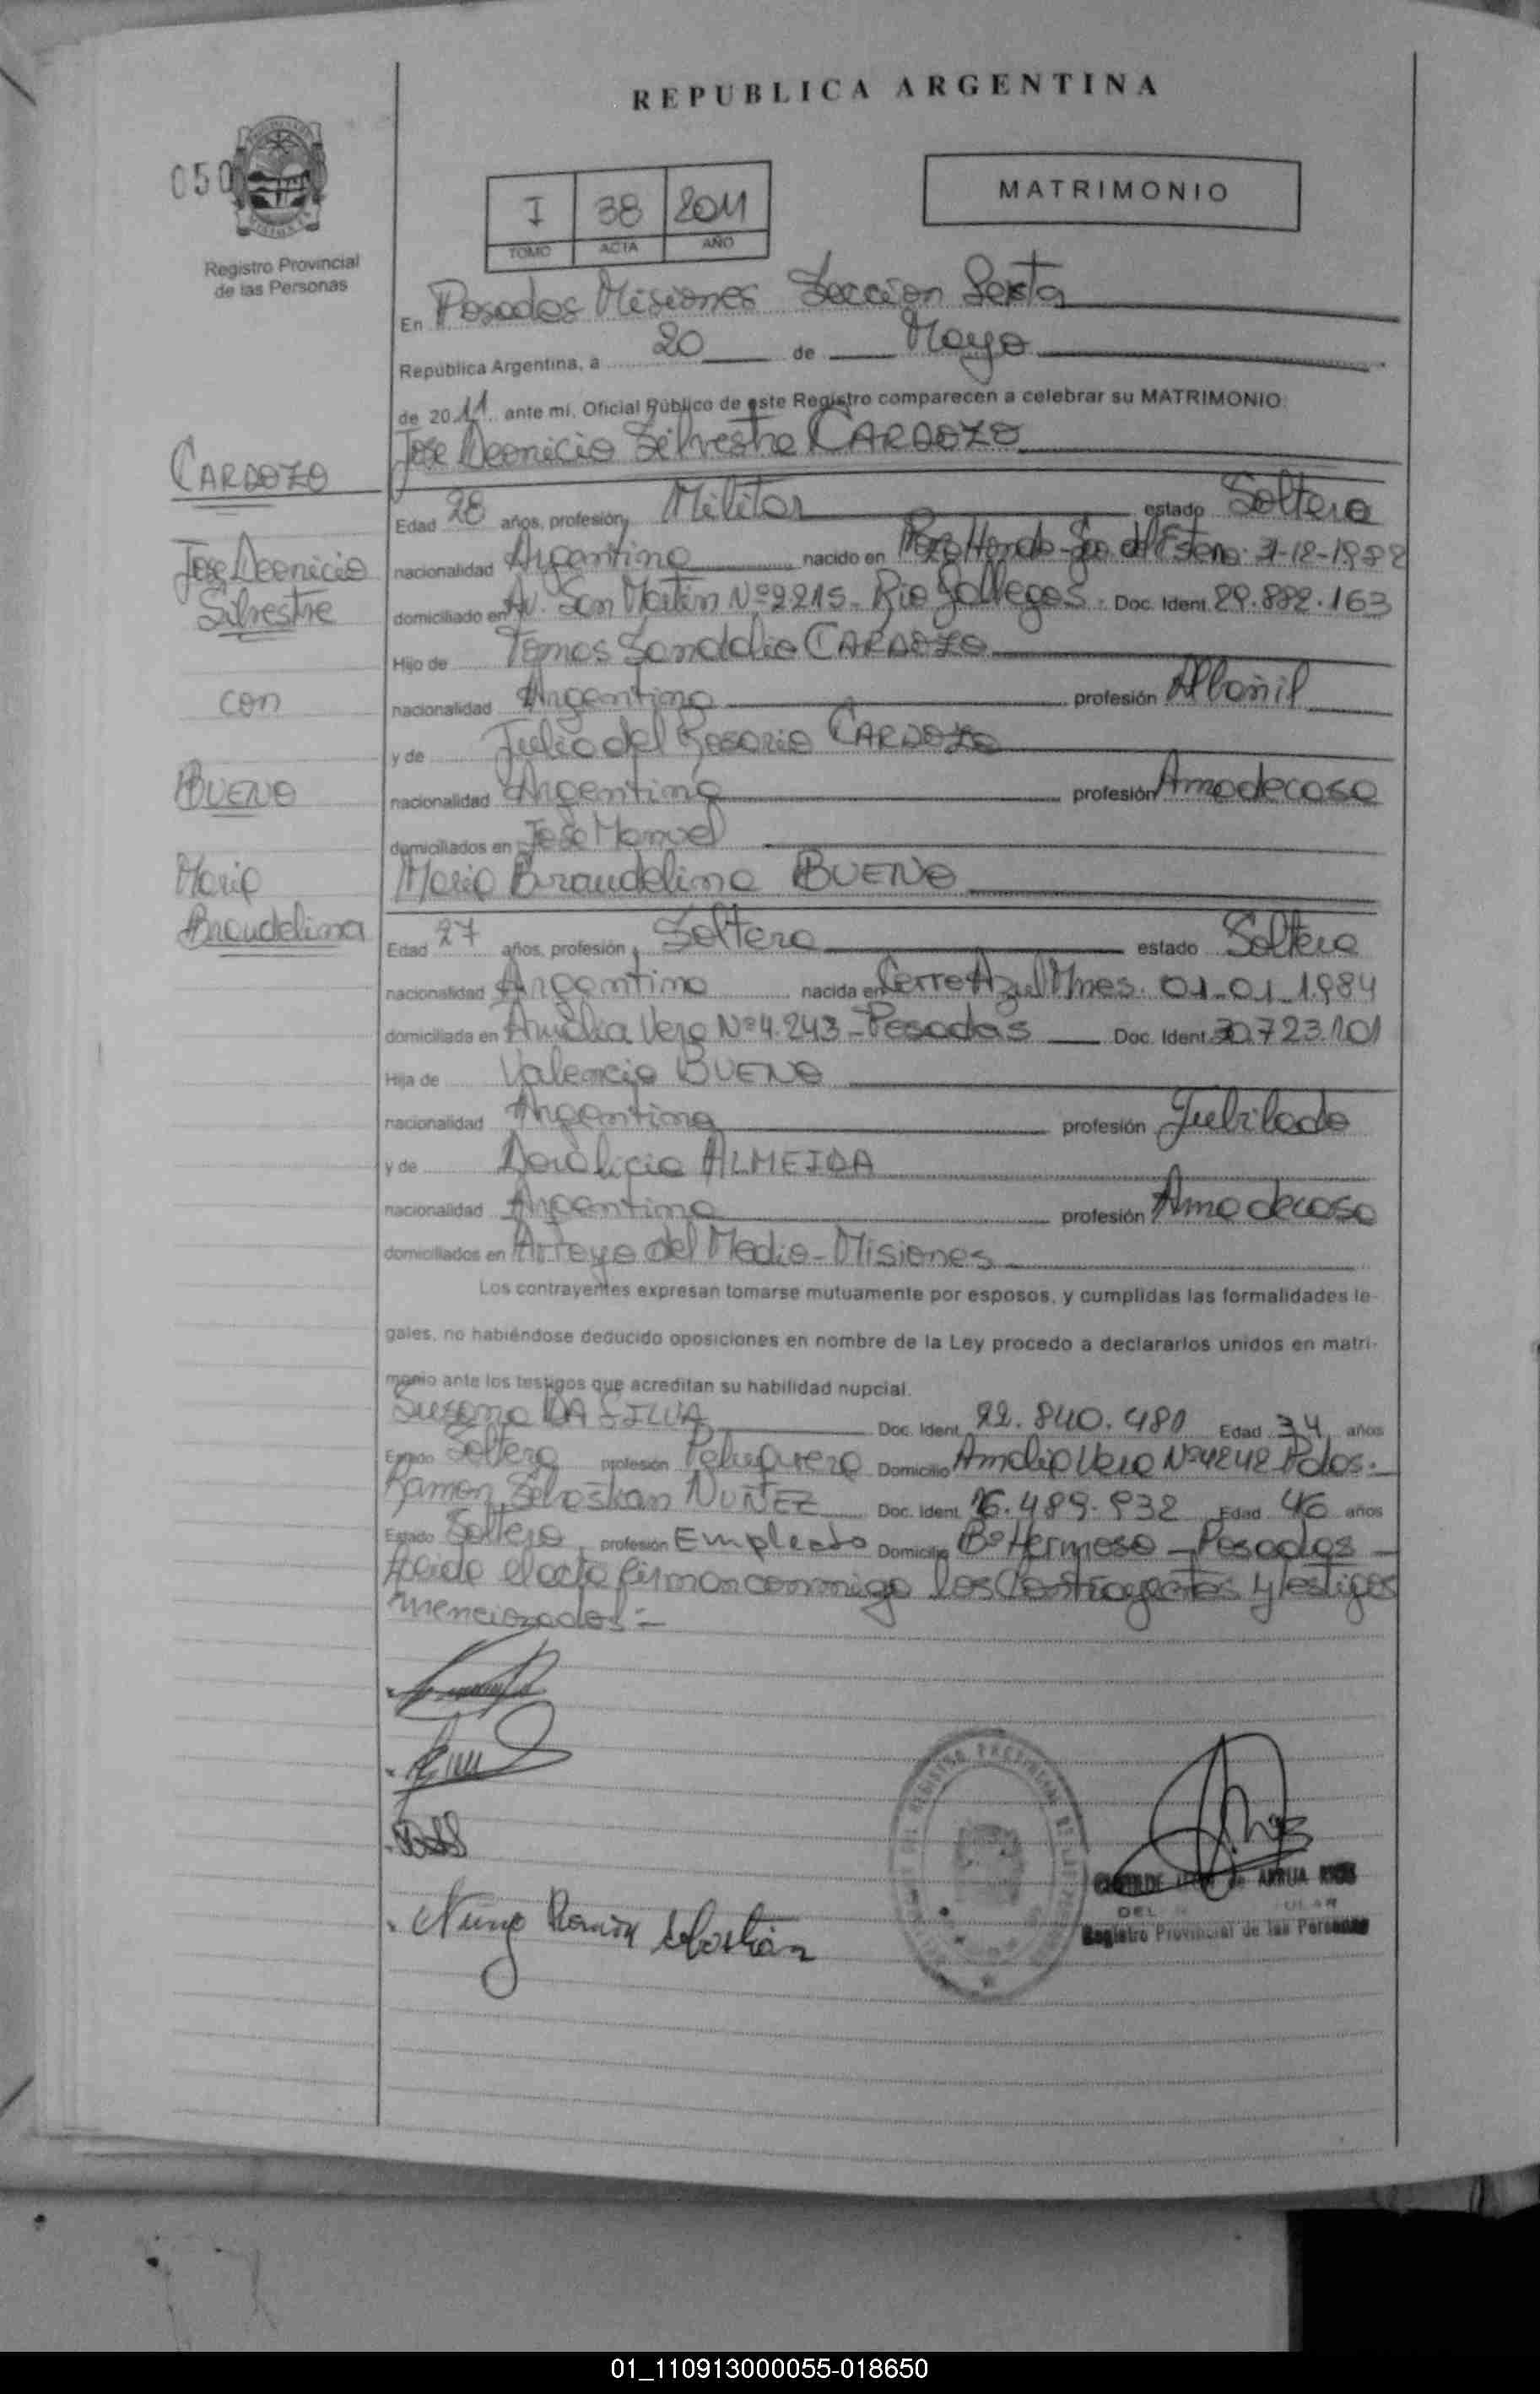 REPUBLICA ARGENTINA
050
MATRIMONIO
I 38 2011
TOMO ACTA AÑO
Registro Provincial
de las Personas
En Posadas Misiones Seccion Sexta
República Argentina, a 20 de Mayo
de 2011 ante mí, Oficial Público de este Registro comparecen a celebrar su MATRIMONIO:
Jose Deonicio Silvestre CARDOZO
CARDOZO
Jose Deonicio
Silvestre
con
BUENO
Maria
Braudelina
Edad 28 años, profesión Militar estado Soltero
nacionalidad Argentina nacido en Pozo Hondo-Sgo. del Estero. 31-12-1982
domiciliado en Av. San Martin Nº 2215- Rio Gallegos. Doc. Ident. 29.882.163
Hijo de Tomas Sandalio CARDOZO
nacionalidad Argentina profesión Albañil
y de Julia del Rosario CARDOZO
nacionalidad Argentina profesión Ama de casa
domiciliados en Jose Manuel
Maria Braudelina BUENO
Edad 27 años, profesión Soltera estado Soltera
nacionalidad Argentina nacida en Cerro Azul Mnes. 01-01-1984
domiciliada en Amelia Vera Nº 4.243-Posadas Doc. Ident. 30.723.101
Hija de Valencio BUENO
nacionalidad Argentina profesión Jubilado
y de Doralicia ALMEIDA
nacionalidad Argentina profesión Ama de casa
domiciliados en Arroyo del Medio-Misiones
Los contrayentes expresan tomarse mutuamente por esposos, y cumplidas las formalidades le-
gales, no habiéndose deducido oposiciones en nombre de la Ley procedo a declararlos unidos en matri-
monio ante los testigos que acreditan su habilidad nupcial.
Susana DA SILVA Doc. Ident. 22.840.481 Edad 34 años
Estado Soltera profesión Peluquera Domicilio Amelia Vera Nº 4242 Pdas.-
Ramon Sebastian NUÑEZ Doc. Ident. 16.489.932 Edad 46 años
Estado Soltero profesión Empleado Domicilio Bº Hermoso - Posadas -
Leida el acta firman conmigo los Contrayentes y testigos
mencionados.-
Nuñez Ramón Sebastián
de ARRUA
Registro Provincial de las Personas
01_110913000055-018650